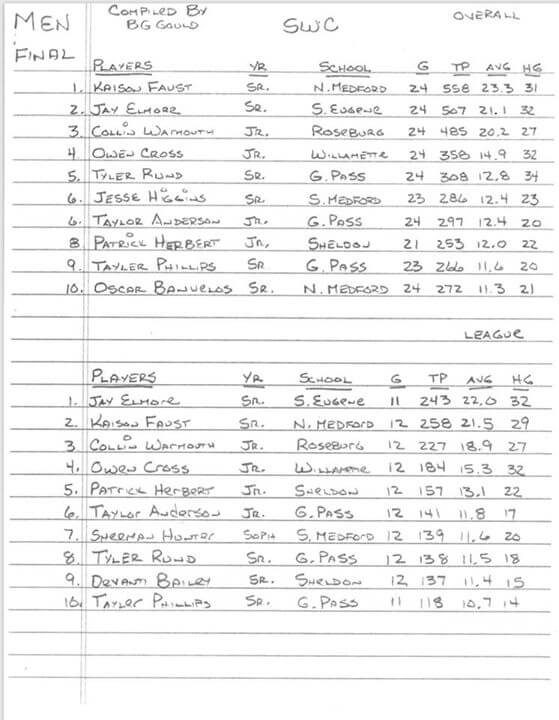 MEN
FINAL
COMPILED BY
BG GOULD
SWC
OVERALL
PLAYERS YR SCHOOL G TP AVG HG
1. KAISON FAUST SR. N. MEDFORD 24 558 23.3 31
2. JAY ELMORE SR. S. EUGENE 24 507 21.1 32
3. COLLIN WARMOUTH JR. ROSEBURG 24 485 20.2 27
4. OWEN CROSS JR. WILLAMETTE 24 358 14.9 32
5. TYLER RUND SR. G. PASS 24 308 12.8 34
6. JESSE HIGGINS SR. S. MEDFORD 23 286 12.4 23
6. TAYLOR ANDERSON JR. G. PASS 24 297 12.4 20
8. PATRICK HERBERT JR. SHELDON 21 253 12.0 22
9. TAYLER PHILLIPS SR G. PASS 23 266 11.6 20
10. OSCAR BANUELOS SR. N. MEDFORD 24 272 11.3 21
LEAGUE
PLAYERS YR SCHOOL G TP AVG HG
1. JAY ELMORE SR. S. EUGENE 11 243 22.0 32
2. KAISON FAUST SR. N. MEDFORD 12 258 21.5 29
3. COLLIN WARMOUTH JR. ROSEBURG 12 227 18.9 27
4. OWEN CROSS JR. WILLAMETTE 12 184 15.3 32
5. PATRICK HERBERT JR. SHELDON 12 157 13.1 22
6. TAYLOR ANDERSON JR. G. PASS 12 141 11.8 17
7. SHERMAN HUNTER SOPH S. MEDFORD 12 139 11.6 20
8. TYLER RUND SR. G. PASS 12 138 11.5 18
9. DEVANTI BAILEY SR. SHELDON 12 137 11.4 15
10. TAYLER PHILLIPS SR. G. PASS 11 118 10.7 14